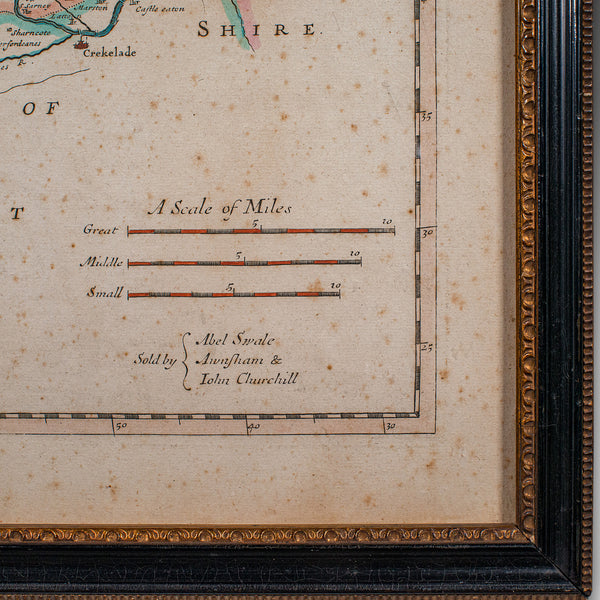 Sarney
Marston
Castle eaton
Sharncote
Crekelade
SHIRE.
OF
T
35
A Scale of Miles
Great 5 10
30
Middle 5 10
Small 5 10
Sold by { Abel Swale
Awnsham &
Iohn Churchill
25
50 40 30